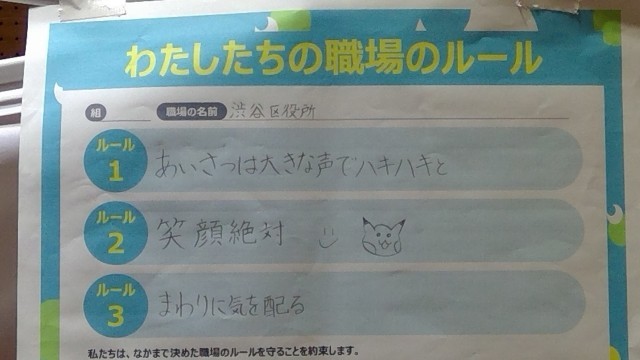 わたしたちの職場のルール
組 職場の名前 渋谷区役所
ルール1 あいさつは大きな声でハキハキと
ルール2 笑顔絶対
ルール3 まわりに気を配る
私たちは、なかまで決めた職場のルールを守ることを約束します。